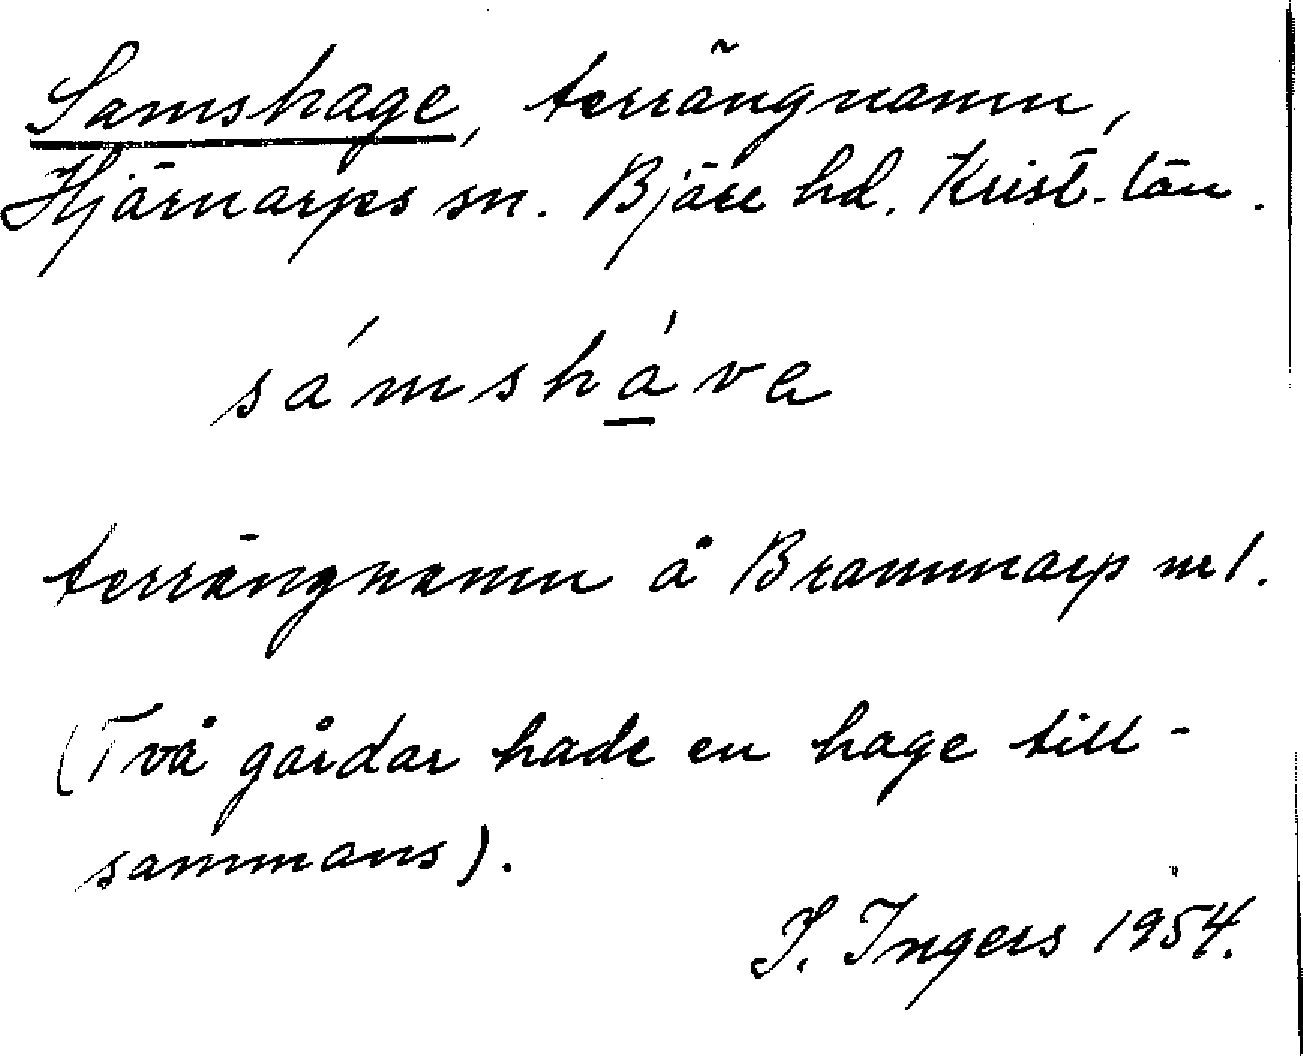 Samshage, terrängnamn,
Hjärnarps sn. Bjäre hd. Krist. län.
sámshá̱va
terrängnamn å Brammarp nr 1.
(Två gårdar hade en hage till-
sammans).
I. Ingers 1954.